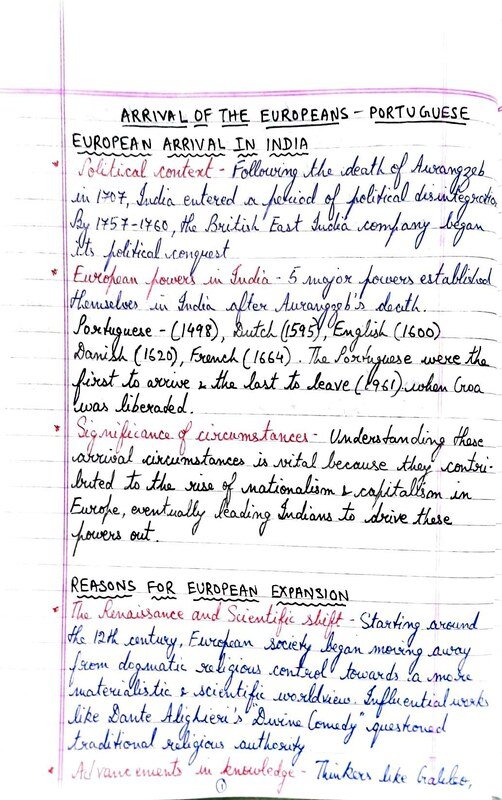 ARRIVAL OF THE EUROPEANS - PORTUGUESE
EUROPEAN ARRIVAL IN INDIA
* Political context - Following the death of Aurangzeb
in 1707, India entered a period of political disintegration
By 1757-1760, the British East India company began
its political conquest
* European powers in India - 5 major powers established
themselves in India after Aurangzeb's death.
Portuguese - (1498), Dutch (1595), English (1600)
Danish (1620), French (1664). The Portuguese were the
first to arrive & the last to leave (1961) when Goa
was liberaded.
* Significance of circumstances - Understanding these
arrival circumstances is vital because they contri-
buted to the rise of nationalism & capitalism in
Europe, eventually leading Indians to drive these
powers out.
REASONS FOR EUROPEAN EXPANSION
* The Renaissance and Scientific shift - Starting around
the 12th century, European society began moving away
from dogmatic religious control towards a more
materialistic & scientific worldview. Influential works
like Dante Alighieri's "Divine Comedy" questioned
traditional religious authority
* Advancements in knowledge - Thinkers like Galileo,
1